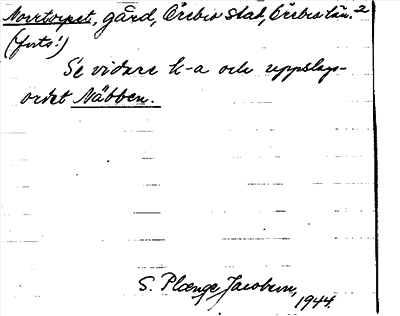 Norrtorpet, gård, Örebro stad, Örebro län. 2
(forts.)
Se vidare k-a och uppslags-
ordet Näbben.
S. Plænge Jacobson,
1944.